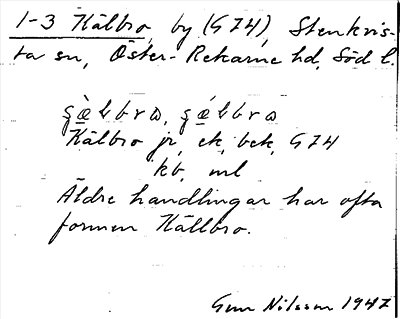 1-3 Kälbro, by (G74), Stenkvis-
ta sn, Öster-Rekarne hd, Söd l.
Kälbro jr, ek, bek, G74
kb, ml
Äldre handlingar har ofta
formen Källbro.
Gun Nilsson 1947